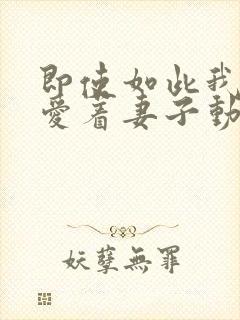 即使如此我
愛着妻子動
妖孽無罪